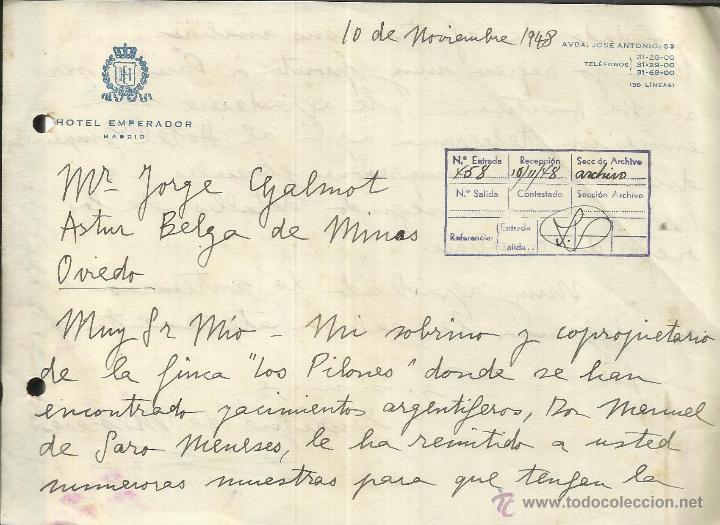 10 de Noviembre 1948
AVDA. JOSÉ ANTONIO, 53
TELÉFONOS
31-28-00
31-29-00
31-69-00
(30 LÍNEAS)
HOTEL EMPERADOR
MADRID
N.º Entrada Recepción Sección Archivo
458 10/11/48 archivo
N.º Salida Contestado Sección Archivo
Referencias Entrada
Salida..
Mr. Jorge Chalmot
Astur Belga de Minas
Oviedo
Muy Sr Mío - Mi sobrino y copropietario
de la finca "Los Pilones" donde se han
encontrado yacimientos argentíferos, Don Manuel
de Saro Meneses, le ha remitido a usted
numerosas muestras para que tengan la
www.todocoleccion.net